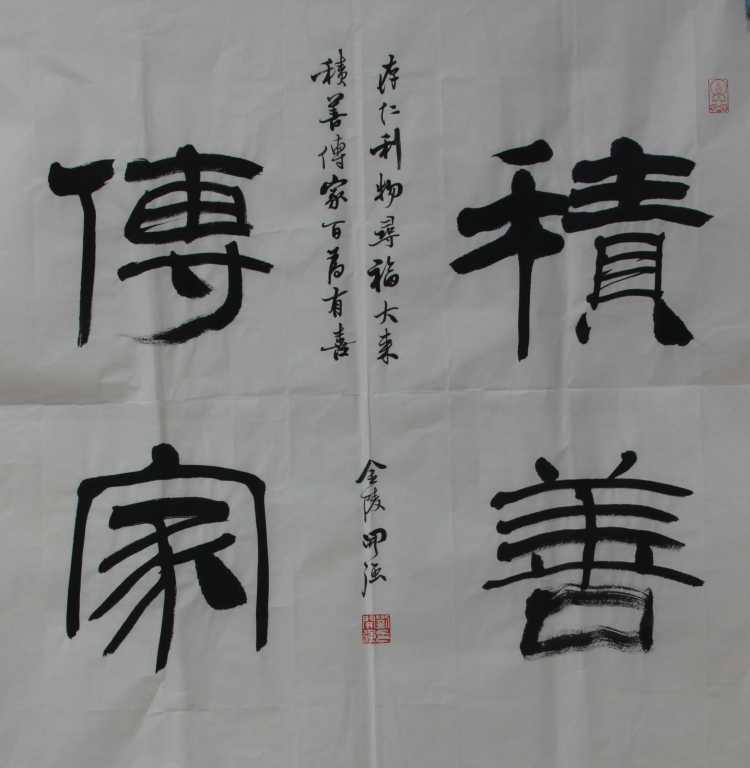 積善
傳家
存仁利物尋福大来
積善傳家百為有喜
金陵